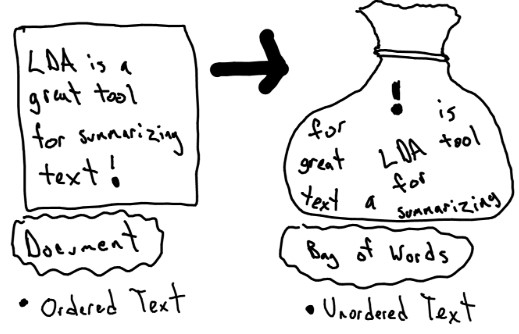 LDA is a
great tool
for summarizing
text!
Document
• Ordered Text
! is
for LDA tool
great for
text a summarizing
Bag of Words
• Unordered Text